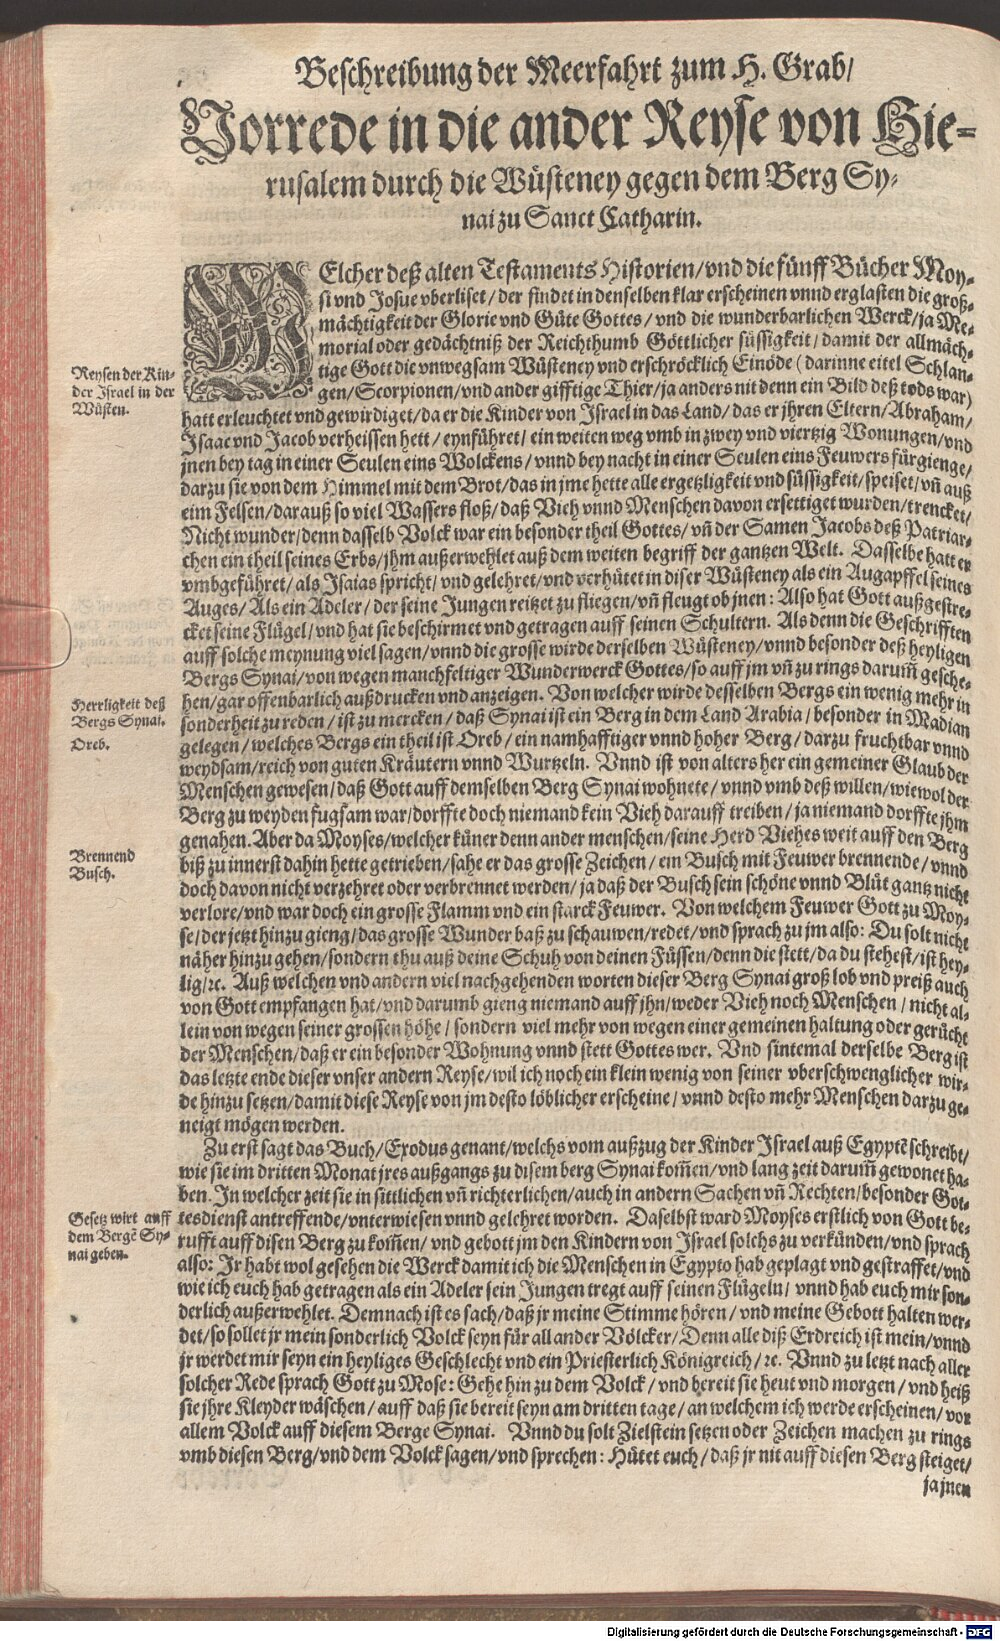 Beschreibung der Meerfahrt zum H. Grab/
Vorrede in die ander Reyse von Hie-
rusalem durch die Wüsteney gegen dem Berg Sy-
nai zu Sanct Catharin.
WElcher deß alten Testaments Historien/vnd die fünff Bücher Moy-
si vnd Josue vberliset/der findet in denselben klar erscheinen vnnd erglasten die groß-
mächtigkeit der Glorie vnd Güte Gottes/vnd die wunderbarlichen Werck/ja Me-
morial oder gedächtniß der Reichthumb Göttlicher süssigkeit/damit der allmäch-
tige Gott die vnwegsam Wüsteney vnd erschröcklich Einöde (darinne eitel Schlan-
gen/Scorpionen/vnd ander gifftige Thier/ja anders nit denn ein Bild deß tods war)
Reysen der Kin-
der Israel in der
Wüsten.
hatt erleuchtet vnd gewirdiget/da er die Kinder von Israel in das Land/das er jhren Eltern/Abraham/
Isaac vnd Jacob verheissen hett/eynführet/ein weiten weg vmb in zwey vnd viertzig Wonungen/vnd
jnen bey tag in einer Seulen eins Wolckens/vnnd bey nacht in einer Seulen eins Feuwers fürgienge/
darzu sie von dem Himmel mit dem Brot/das in jme hette alle ergetzligkeit vnd süssigkeit/speiset/vñ auß
eim Felsen/darauß so viel Wassers floß/daß Vieh vnnd Menschen davon ersettiget wurden/trencket/
Nicht wunder/denn dasselb Volck war ein besonder theil Gottes/vñ der Samen Jacobs deß Patriar-
chen ein theil seines Erbs/jhm außerwehlet auß dem weiten begriff der gantzen Welt. Dasselbe hatt er
vmbgeführet/als Isaias spricht/vnd gelehret/vnd verhütet in diser Wüsteney als ein Augapffel seines
Auges/Als ein Adeler/der seine Jungen reitzet zu fliegen/vñ fleugt ob jnen: Also hat Gott außgestre-
cket seine Flügel/vnd hat sie beschirmet vnd getragen auff seinen Schultern. Als denn die Geschrifften
auff solche meynung viel sagen/vnnd die grosse wirde derselben Wüsteney/vnnd besonder deß heyligen
Bergs Synai/von wegen manchfeltiger Wunderwerck Gottes/so auff jm vñ zu rings darum̃ gesche-
Herrligkeit deß
Bergs Synai.
hen/gar offenbarlich außdrucken vnd anzeigen. Von welcher wirde desselben Bergs ein wenig mehr in
sonderheit zu reden/ist zu mercken/daß Synai ist ein Berg in dem Land Arabia/besonder in Madian
Oreb.
gelegen/welches Bergs ein theil ist Oreb/ein namhafftiger vnnd hoher Berg/darzu fruchtbar vnnd
weydsam/reich von guten Kräutern vnnd Wurtzeln. Vnnd ist von alters her ein gemeiner Glaub der
Menschen gewesen/daß Gott auff demselben Berg Synai wohnete/vnnd vmb deß willen/wiewol der
Berg zu weyden fugsam war/dorffte doch niemand kein Vieh darauff treiben/ja niemand dorffte jhm
genahen. Aber da Moyses/welcher küner denn ander menschen/seine Herd Viehes weit auff den Berg
Brennend
Busch.
biß zu innerst dahin hette getrieben/sahe er das grosse Zeichen/ein Busch mit Feuwer brennende/vnnd
doch davon nicht verzehret oder verbrennet werden/ja daß der Busch sein schöne vnnd Blüt gantz nicht
verlore/vnd war doch ein grosse Flamm vnd ein starck Feuwer. Von welchem Feuwer Gott zu Moy-
se/der jetzt hinzu gieng/das grosse Wunder baß zu schauwen/redet/vnd sprach zu jm also: Du solt nicht
näher hinzu gehen/sondern thu auß deine Schuh von deinen Füssen/denn die stett/da du stehest/ist hey-
lig/ꝛc. Auß welchen vnd andern viel nachgehenden worten dieser Berg Synai groß lob vnd preiß auch
von Gott empfangen hat/vnd darumb gieng niemand auff jhn/weder Vieh noch Menschen/nicht al-
lein von wegen seiner grossen höhe/sondern viel mehr von wegen einer gemeinen haltung oder gerücht
der Menschen/daß er ein besonder Wohnung vnnd stett Gottes wer. Vnd sintemal derselbe Berg ist
das letzte ende dieser vnser andern Reyse/wil ich noch ein klein wenig von seiner vberschwenglicher wir-
de hinzu setzen/damit diese Reyse von jm desto löblicher erscheine/vnnd desto mehr Menschen darzu ge-
neigt mögen werden.
Zu erst sagt das Buch/Exodus genant/welchs vom außzug der Kinder Israel auß Egyptẽ schreibt/
wie sie im dritten Monat jres außgangs zu disem berg Synai kom̃en/vnd lang zeit darum̃ gewonet ha-
ben. In welcher zeit sie in sittlichen vñ richterlichen/auch in andern Sachen vñ Rechten/besonder Got-
Gesetz wirt auff
dem Bergẽ Sy-
nai geben.
tesdienst antreffende/vnterwiesen vnnd gelehret worden. Daselbst ward Moyses erstlich von Gott be-
rufft auff disen Berg zu kom̃en/vnd gebott jm den Kindern von Israel solchs zu verkünden/vnd sprach
also: Jr habt wol gesehen die Werck damit ich die Menschen in Egypto hab geplagt vnd gestraffet/vnd
wie ich euch hab getragen als ein Adeler sein Jungen tregt auff seinen Flügeln/vnnd hab euch mir son-
derlich außerwehlet. Demnach ist es sach/daß jr meine Stimme hören/vnd meine Gebott halten wer-
det/so sollet jr mein sonderlich Volck seyn für all ander Völcker/Denn alle diß Erdreich ist mein/vnnd
jr werdet mir seyn ein heyliges Geschlecht vnd ein Priesterlich Königreich/ꝛc. Vnnd zu letzt nach aller
solcher Rede sprach Gott zu Mose: Gehe hin zu dem Volck/vnd bereit sie heut vnd morgen/vnd heiß
sie jhre Kleyder wäschen/auff daß sie bereit seyn am dritten tage/an welchem ich werde erscheinen/vor
allem Volck auff diesem Berge Synai. Vnnd du solt Zielstein setzen oder Zeichen machen zu rings
vmb diesen Berg/vnd dem Volck sagen/vnd sprechen: Hütet euch/daß jr nit auff diesen Berg steiget/
ja jnen
Digitalisierung gefördert durch die Deutsche Forschungsgemeinschaft - DFG